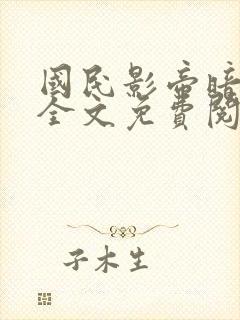 國民影帝暗
全文免費閱
子木生